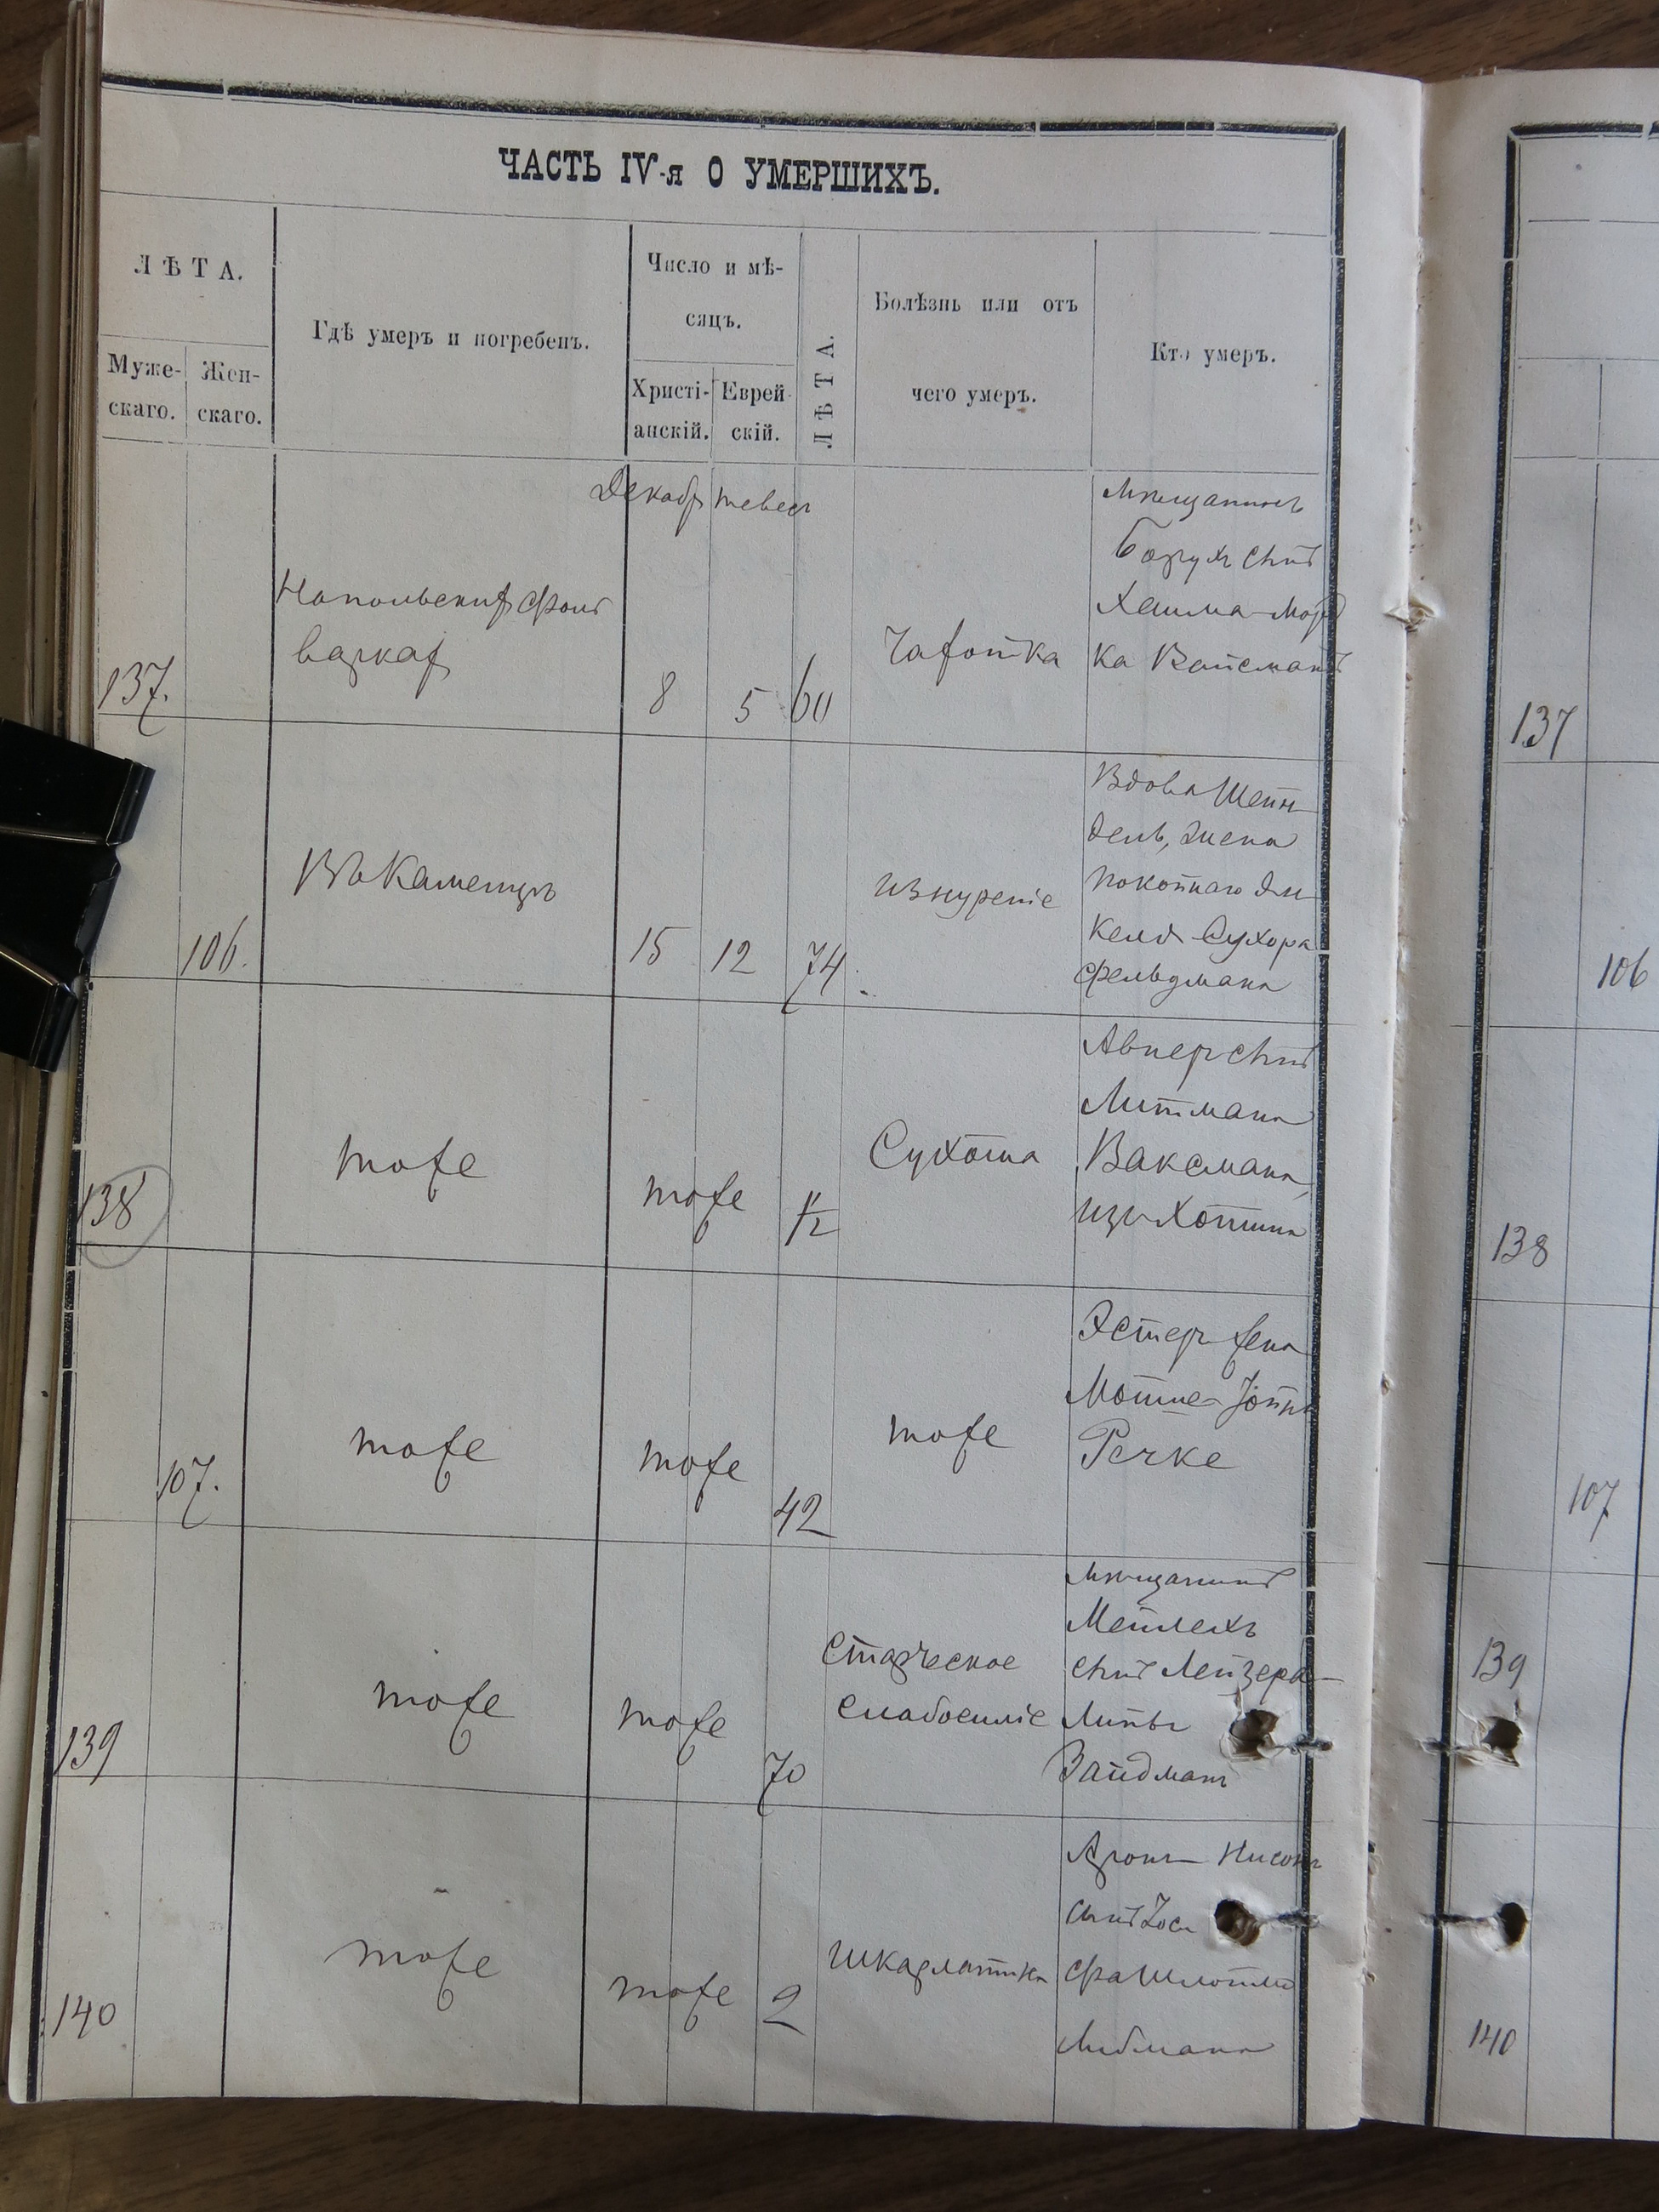 ЧАСТЬ IV-я О УМЕРШИХЪ.
ЛѢТА.
Муже-
скаго.
Жен-
скаго.
Гдѣ умеръ и погребенъ.
Число и мѣ-
сяцъ.
Христі-
анскій.
Еврей
скій.
ЛѢТА.
Болѣзнь или отъ
чего умеръ.
Кто умеръ.
Декабр тевес
137.
8
5
60
Чахотка
Мѣщанинъ
Борух сынъ
Хаима-Морд
ка Вайсманъ
137
106.
Въ Каменцѣ
15
12
74.
изнуреніе
Вдова Шейн
дель, жена
покойнаго
Сухора
Фельдмана
106
138
тоже
тоже
1/2
Сухота
Авнер сынъ
Литмана
Ваксмана,
изъ Хотина
138
107.
тоже
тоже
42
тоже
Эстер жена
Мошие-Іойны
Речке
107
139
тоже
тоже
70
Старческое
слабосиліе
мѣщанинъ
Мейлехъ
сынъ Лейзера-
Липы
Зайдман
139
140
тоже
тоже
2
шкарлатина
Арон- Нисон
сынъ Іос
фа Шлоймы
Либмана
140